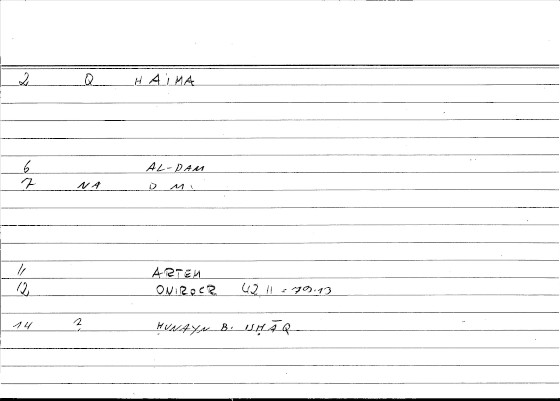 2 Q HAIMA
6 AL-DAM
7 NA D M.
11 ARTEM
12 ONIROCR 42 11 = 79.13
14 ? ḤUNAYN B. ISḤĀQ